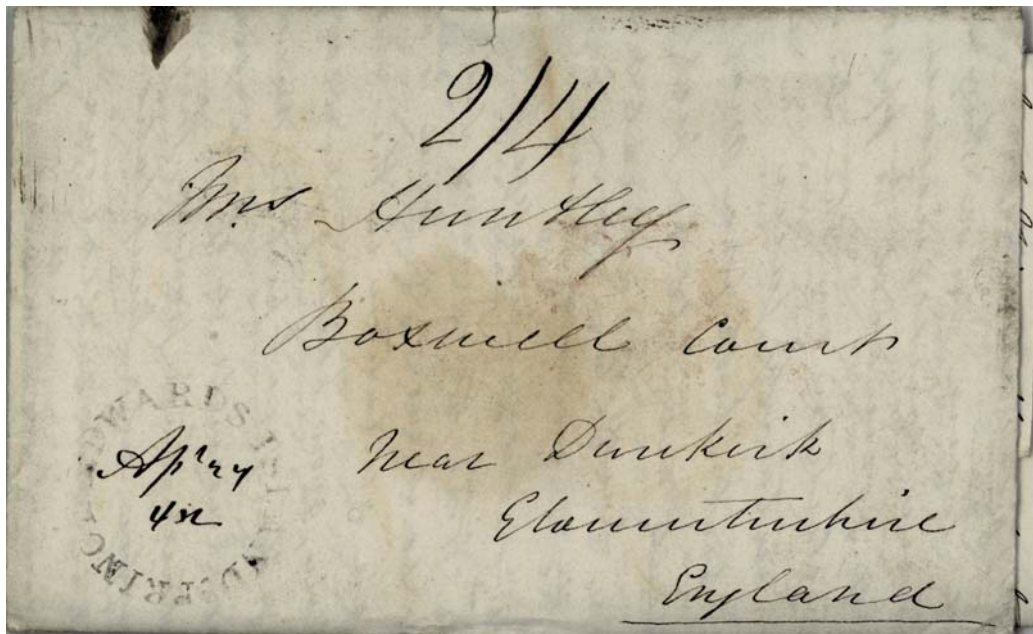 2/4
Mrs Huntley
Boxwell Court
near Dunkirk
Gloucestershire
England
PRINCE EDWARDS ISLAND
Apl 27